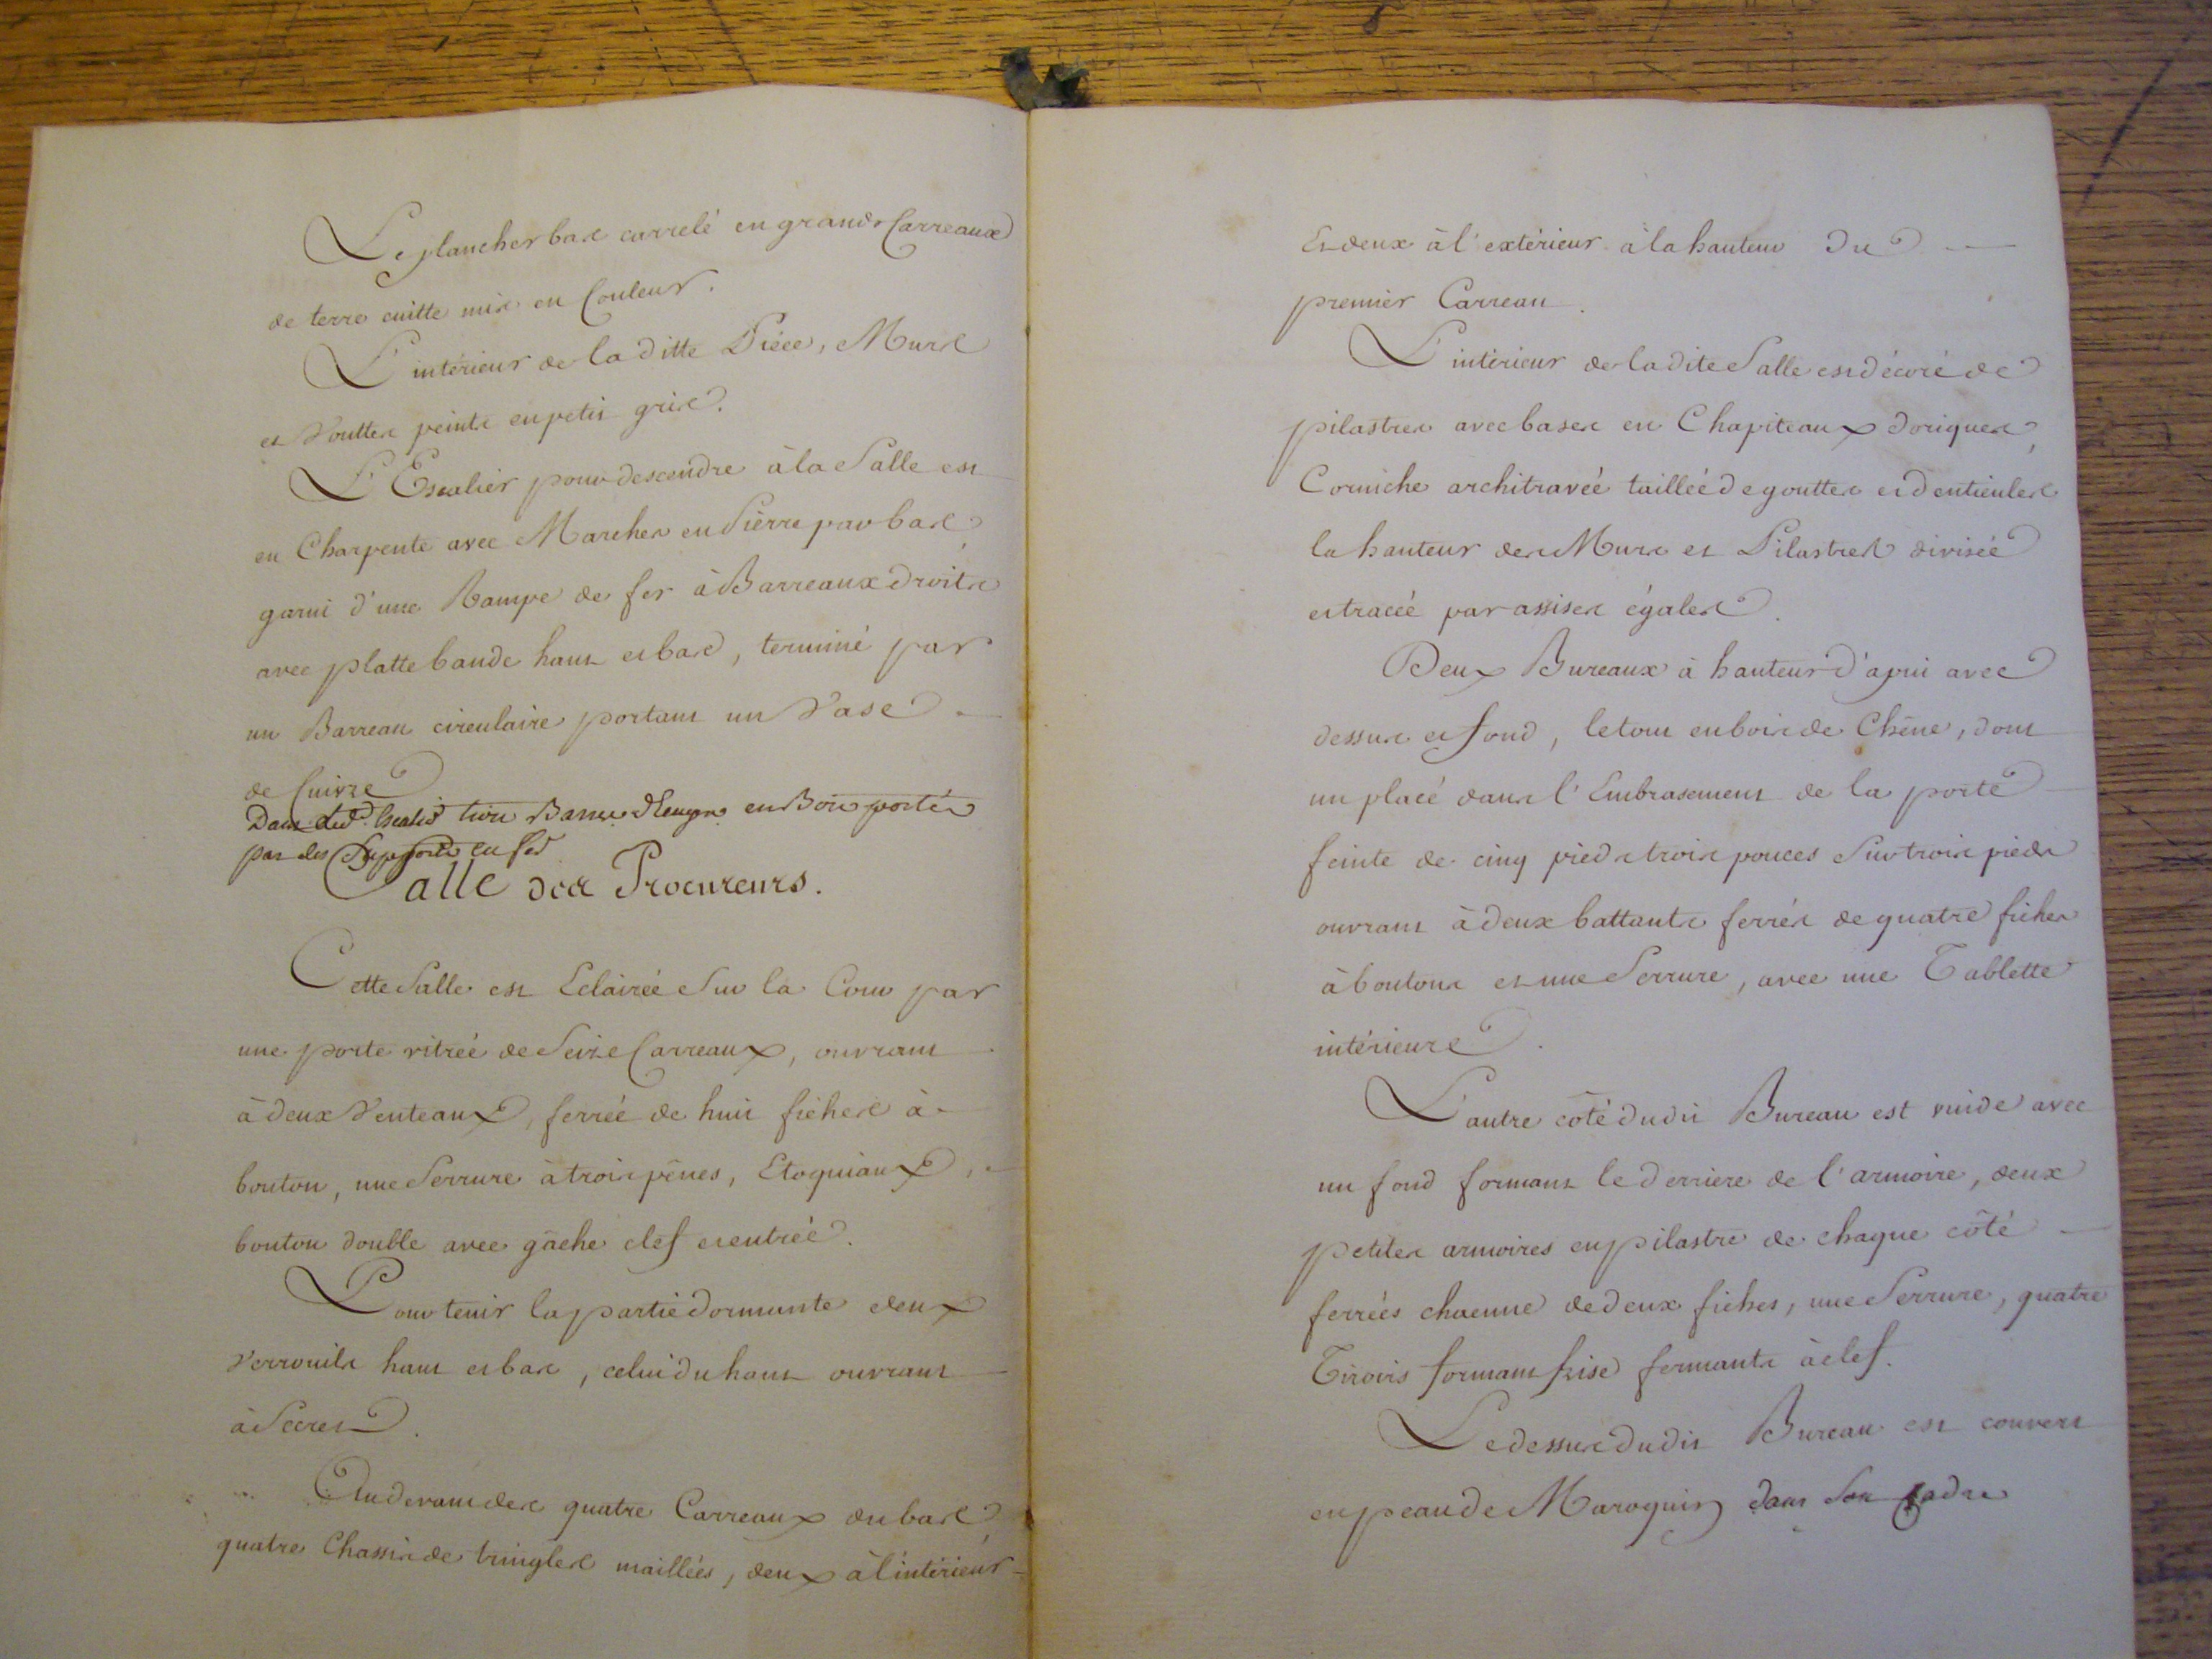 Le plancher bas carrelé en grands Carreaux
de terre cuitte mis en Couleur.
L'intérieur de la ditte Piéce, Murs
et Vouttes peints en petit gris.
L'Escalier pour descendre à la Salle est
en Charpente avec Marches en Pierre par bas,
garni d'une Rampe de fer à Barreaux droits
avec platte bande haut et bas, terminé par
un Barreau circulaire portant un Vase
de Cuivre
Dans led. Escalier trois Barres en Bois portées
par des Supports en fer
Salle des Procureurs.
Cette Salle est Eclairée Sur la Cour par
une porte vitrée de Seize Carreaux, ouvrant
à deux Venteaux, ferrée de huit fiches à
bouton, une Serrure à trois pênes, Etoquiaux,
bouton double avec gâche clef et entrée.
Pour tenir la partie dormante deux
Verrouils haut et bas, celui du haut ouvrant
à Secret.
Au devant des quatre Carreaux du bas,
quatre Chassis de tringles maillées, deux à l'intérieur
Et deux à l'extérieur à la hauteur du
premier Carreau.
L'intérieur de la dite Salle est décoré de
pilastres avec bases en Chapiteaux doriques,
Corniche architravée taillée de gouttes et denticules
la hauteur des Murs et Pilastres divisée
et tracée par assises égales.
Deux Bureaux à hauteur d'apui avec
dessus et fond, le tout en bois de Chêne, dont
un placé dans l'Embrasement de la porte
feinte de cinq pieds trois pouces Sur trois pieds
ouvrant à deux battants ferrés de quatre fiches
à boutons et une Serrure, avec une Tablette
intérieure.
L'autre côté dudit Bureau est vuide avec
un fond formant le derriere de l'armoire, deux
petites armoires en pilastre de chaque côté
ferrées chacune de deux fiches, une Serrure, quatre
Tiroirs formant frise fermants à clef.
Le dessus dudit Bureau est couvert
en peau de Maroquin dans Son Cadre